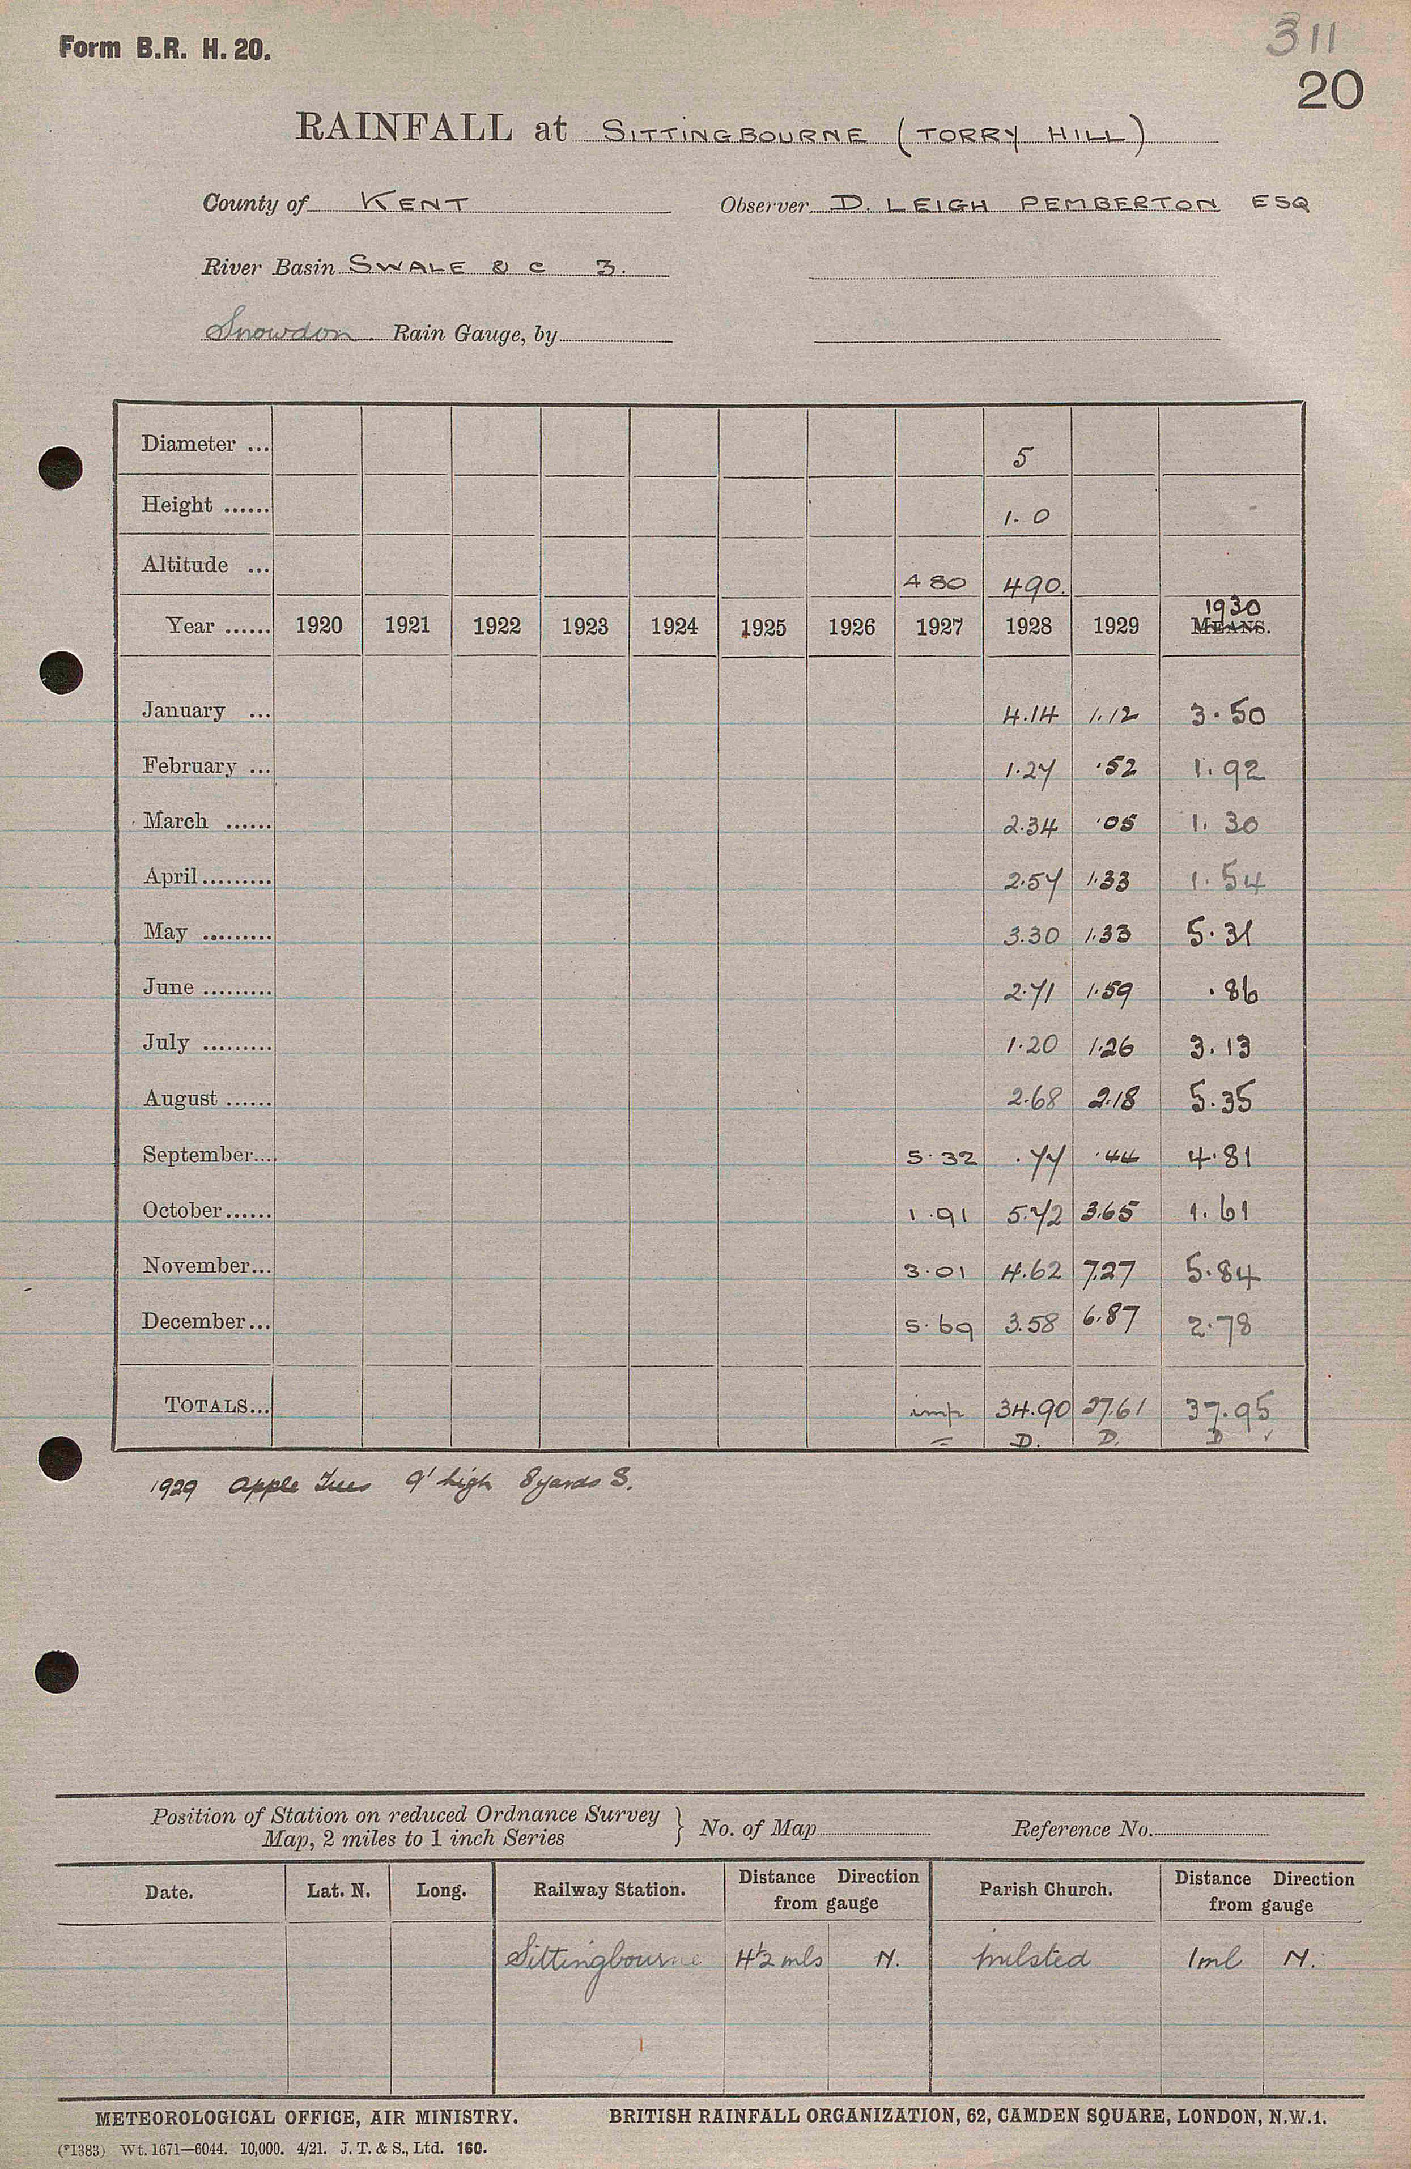 Form B.R. H. 20.
311
20
RAINFALL at SITTINGBOURNE (TORRY HILL)
County of KENT Observer D. LEIGH PEMBERTON ESQ
River Basin SWALE & C 3.
Snowdon Rain Gauge, by
Diameter ... 5
Height ...... 1.0
Altitude ... 480 490.
1930
Year ...... 1920 1921 1922 1923 1924 1925 1926 1927 1928 1929 MEANS.
January ... 4.14 1.12 3.50
February ... 1.27 .52 1.92
March ...... 2.34 .05 1.30
April ......... 2.57 1.33 1.54
May ......... 3.30 1.33 5.31
June ......... 2.71 1.59 .86
July ......... 1.20 1.26 3.13
August ...... 2.68 2.18 5.35
September... 5.32 .77 .44 4.81
October ...... 1.91 5.72 3.65 1.61
November... 3.01 4.62 7.27 5.84
December... 5.69 3.58 6.87 2.78
TOTALS... imp 34.90 27.61 37.95
D. D. D ✓
1929 Apple Trees 9' high 8 yards S.
Position of Station on reduced Ordnance Survey
Map, 2 miles to 1 inch Series } No. of Map Reference No.
Date. Lat. N. Long. Railway Station. Distance Direction from gauge Parish Church. Distance Direction from gauge
Sittingbourne 4½ mls N. Milsted 1 ml N.
METEOROLOGICAL OFFICE, AIR MINISTRY. BRITISH RAINFALL ORGANIZATION, 62, CAMDEN SQUARE, LONDON, N.W.1.
(*1383) Wt. 1671—6044. 10,000. 4/21. J. T. & S., Ltd. 160.